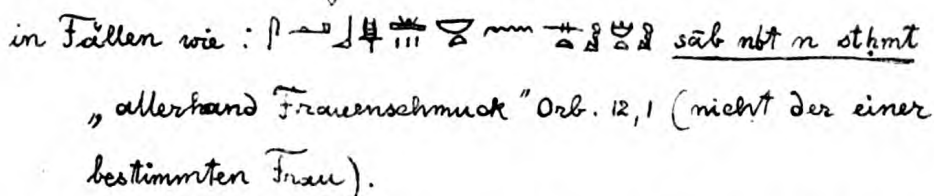 in Fällen wie : sāb nbt n stḥmt
„allerhand Frauenschmuck" Orb. 12,1 (nicht der einer
bestimmten Frau).